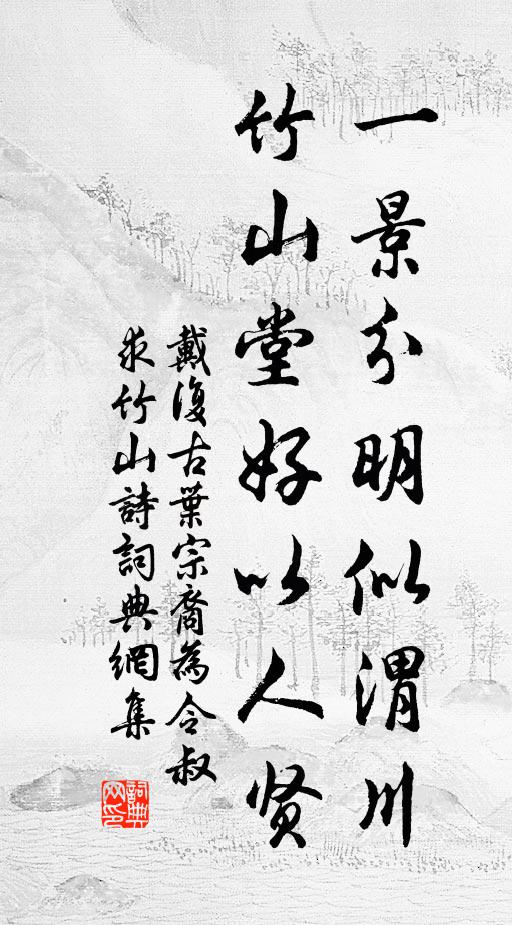 一景分明似渭川
竹山堂好以人贤
戴復古葉宗裔為令叔
求竹山詩詞典網集
詞典网印